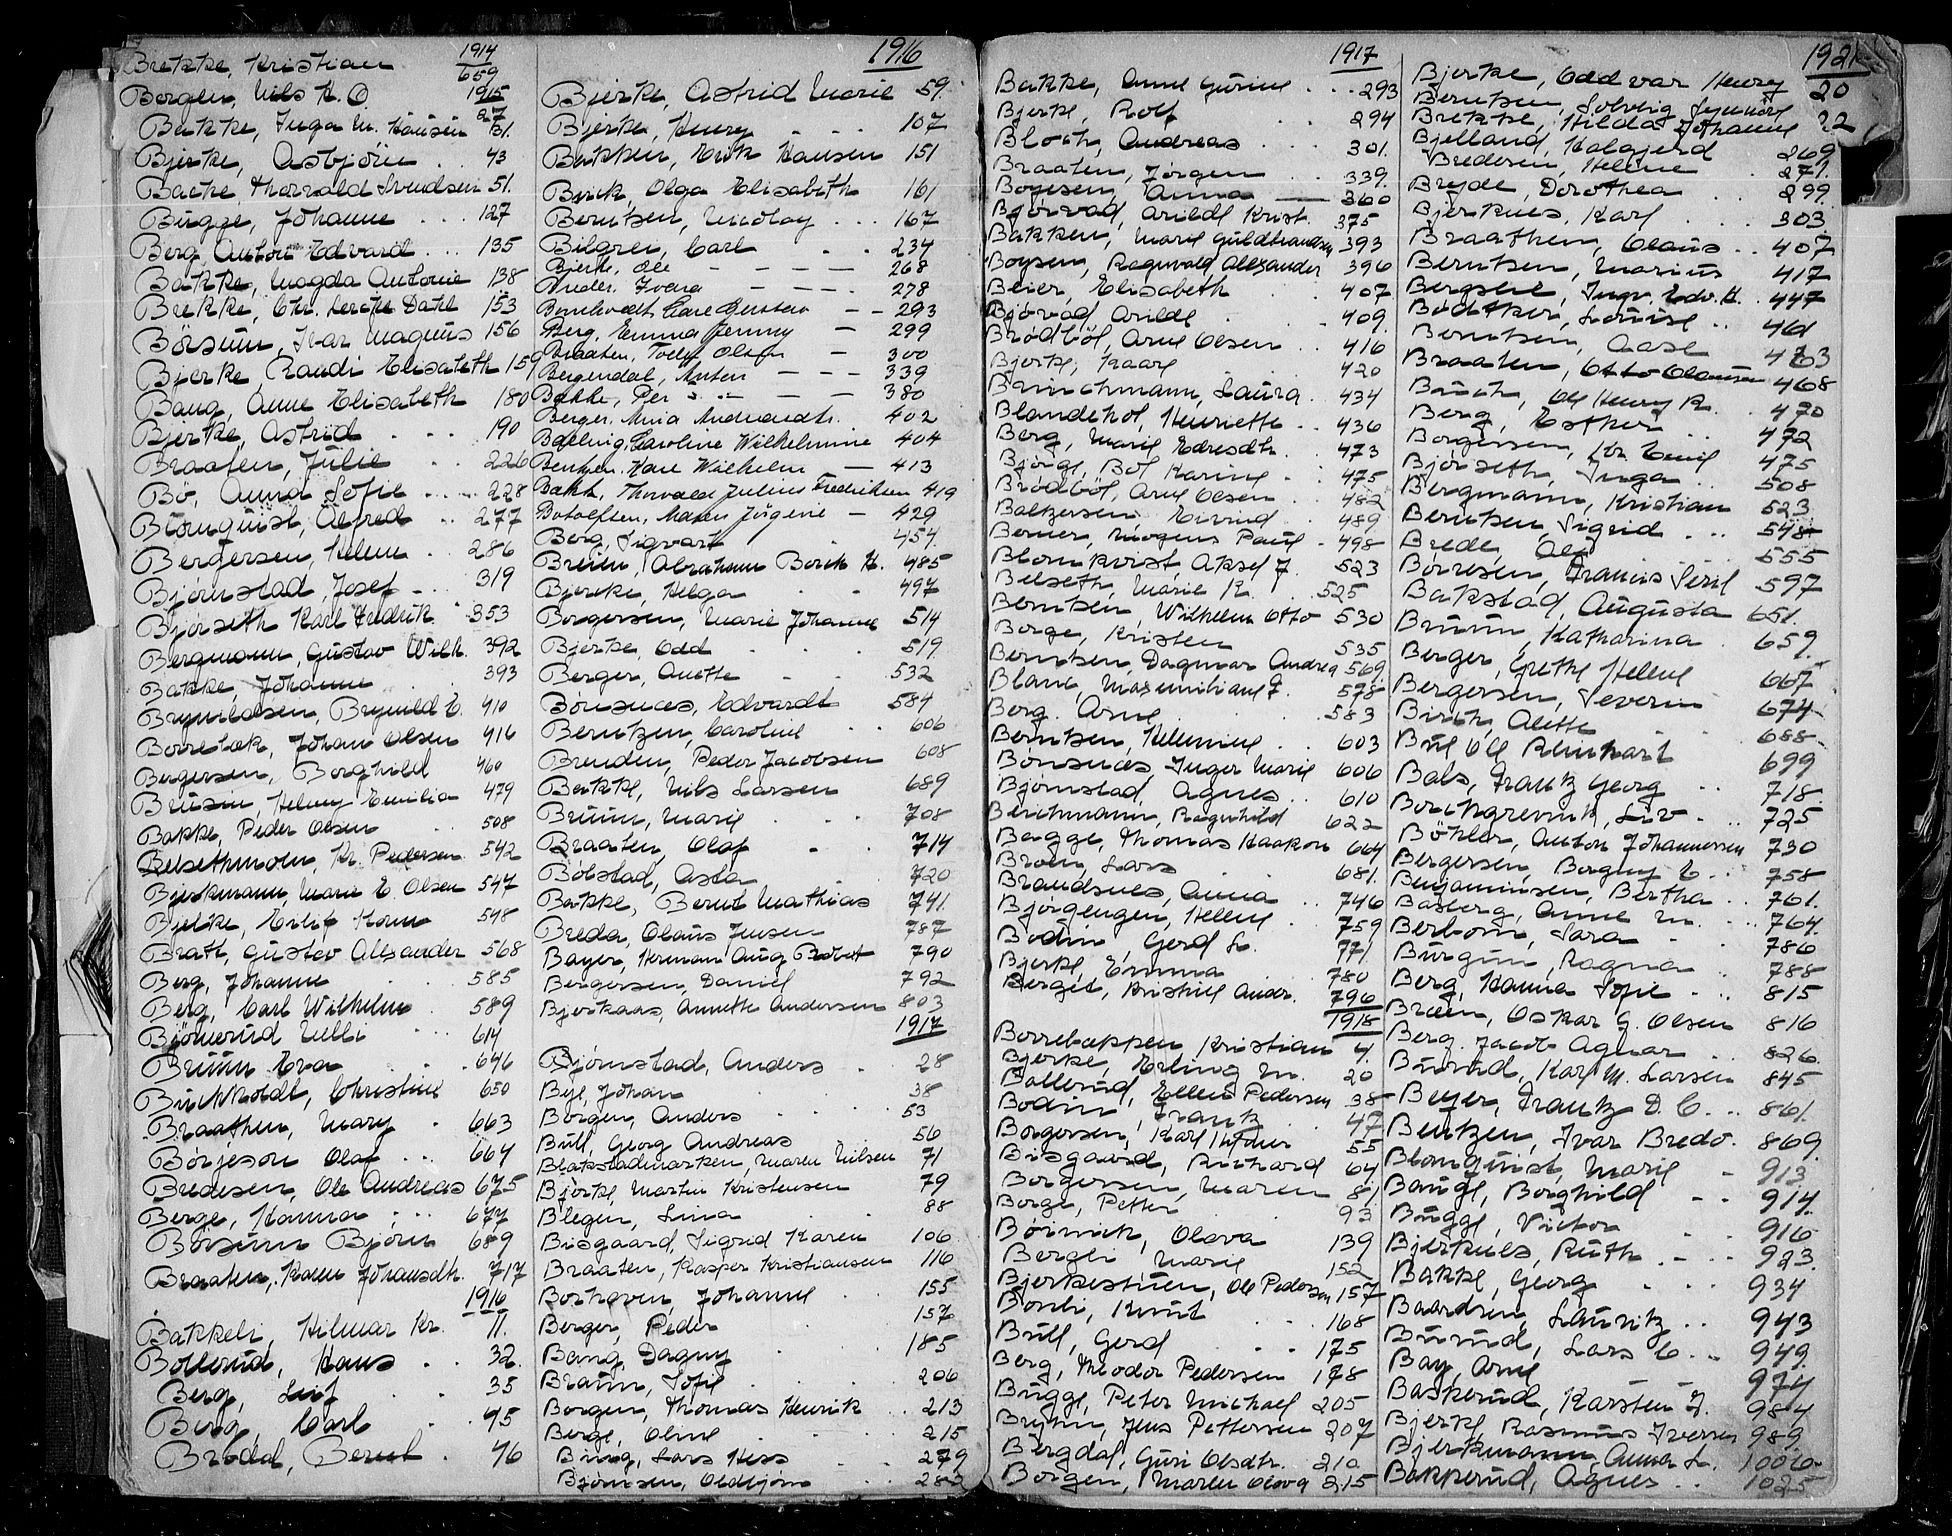 1914
Brekke, Kristian 659
1915
Borgen, Nils H. O. 27
Bakke, Inga M. Hansen 31.
Bjerke, Asbjörn . 43
Bache, Thorvald Svendsen 51.
Bugge, Johanne ... 127
Berg, Anton Edvard ... 135
Bakke, Magda Antonie 138
Brekke, Chr. Lerche Dahl 153
Börsum, Ivar Magnus 156
Bjerke, Randi Elisabeth 159
Bang, Anne Elisabeth 180
Bjerke, Astrid . . . 190
Braaten, Julie .. 226
Bö, Anna Sofie .... 228
Blomquist, Alfred .. 277
Bergersen, Helene . 286
Björnstad, Josef ... 319
Bjorseth Karl Fredrik 353
Bergmann, Gustav Wilh. 392
Bakke, Johanne . 393
Brynildsen, Brynild E. 410
Borrebæk, Johan Olsen 416
Bergersen, Borghild 460
Bruun, Helmy Emilia 479
Bakke, Peder Olsen .. 508
Belsethmoen, Kr. Pedersen 542
Bjerkmann, Marie E. Olsen 547
Bjelke, Erling 548
Brath, Gustav Alexander 568
Berg, Johanne . . 585
Berg, Carl Wilhelm . 589
Björnerud Lilli ... 614
Bruun Eva . . 646
Buchholdt, Christine 650
Braathen, Mary . 663
Börjeson Olaf ... 664
Bredesen, Ole Andreas 675
Berge, Hanna ... 677
Börsum Björn . 689
Braaten, Karen Johansdtr. 717
1916
Bakkeli, Hilmar Kr. 11.
Bollerud, Hans . . 32
Berg, Leif . . 35
Berg, Carl . . 45
Brodal, Bernt . 46
1916
Bjerke, Astrid Marie 59.
Bjerke, Henry - - - 107
Bakken, Erik Hansen 151
Berck, Olga Elisabeth 161
Berntsen, Nicolay ... 167
Bilgrei, Carl - . 234
Bjerke, Ole - - - - 268
278
Bomholdt Carl Gustav - - 293
Berg, Emma Jenny - 299
Braaten, Olsen - 300
Bergendal, Anton - - - 339
Bakke, Per - - - 380
Berger, Maria Andreasdtr. 402
Ballvig, Caroline Wilhelmine 404
Bentzen, Karl Wilhelm - 413
Bakke, Thorvald Julius Fredriksen 419
Botolfsen, Maren Jörgine - 429
Berg, Sigvart . 454.
Breien, Abraham Borch H. 485
Bjercke, Helga - . 497
Borgersen, Marie Johanne 514
Bjerke, Odd . . . 519
Berger, Anette - - 532
Börsnæs, Edvardt 584
Berntzen, Caroline .. 606
Brenden, Peder Jacobsen 608
Bakke, Nils Larsen 689
Bruun, Marie . . . 708
Braaten, Olaf - . 714
Bölstad, Asta . 720
Bakke, Bernt Mathias 741.
Breda, Olaus Jensen 787
Bayer, Herman Aug. Robert 790
Bergersen, Daniel 792
Bjerkaas, Annette Andersen 803
1917
Björnstad, Anders . 28
Bye, Johan . . 38
Borgen, Anders . . . 53
Bull, Georg Andreas 56
Blakstadmarken, Maren Nilsen 71
Björke, Martin Kristensen 79
Blegen, Lina . . 88
Bisgaard, Sigrid Karen 106
Braaten, Kasper Kristiansen 116
Borhaven, Johanne . 155
Berger, Peder . 157
Bang, Dagny . . 185
Braun, Sofie . . . 206
Borgen, Thomas Henrik .. 213
Berge, Oline . . . 215
Buug, Lars Hess . . 279
Björnsen, Oldtjøm . . 282
1917
Bakke, Anne Gurine . . . 293
Bjerke, Rolf . . 294
Bloch, Andreas ... 301.
Braaten, Jörgen .. 339.
Boyesen, Anna — 360
Björvad, Arild Krist. 375
Bakken, Marie Guldbrandsen 393
Boysen, Ragnvald Alexander 396
Beier, Elisabeth . . 407
Bjövad Arild . . . 409
Brödböl, Arne Olsen .. 416
Bjerke, Kaare . . 420
Brinchmann, Laura . 434
Blandehol, Henriette .. 436
Berg, Marie Edresdtr. . 473
Björge, Bol Karine . . 475
Brödböl, Arne Olsen . . 482
Baltzersen Eivind . . 489
Borner, Mogens Paul . 498
Blomkvist, Aksel J. 523
Belseth, Marie K. . 525
Berntsen, Wilhelm Otto 530
Borge, Kristen 535
Berntsen, Dagmar Andrea 569.
Blanc, Maximiliane F. 578
Berg. Arne . . . 583
Berntsen, Helmine . . 603
Børnsnæs, Inger Marie 606
Bjørnstad, Agnes .. 610
Berchmann, Ragnhild 622
Bagge, Thomas Haakon 664
Broen, Lars 681.
Brandsnes, Anna . . 746
Bjørgengen, Helene . 759
Bodin, Gerd L. . 771.
Bjerke, Emma . 780
Berget, Kristine Andr. 796
1918
Borrebæppen Kristian 4.
Bjerke, Erling M. 20
Bollerud, Ellen Pedersen 38
Bodin, Frantz . 47
Borgersen, Karl 55
Bisgaard, Richard 64
Borgersen, Maren 81
Borge, Petter . . 93
Börnich, Olava 139
Bergli Marie . 152
Bjerkestuen, Ole Pedersen 157
Bonli, Knut . . . 168
Bull, Gerd . . . 175
Berg, Theodor Pedersen 178
Bugge, Peter Michael 205
Bryhn, Jens Pettersen 207
Bergdal, Guri Olsdtr. 210
Borgen, Maren Olava 215
1921
Bjerke, Oddvar Henry 20
Berntsen, Solveig Synnöve
Brekke, Hilda Johanne 22
Bjelland, Halgjerd 269
Bredesen, Helene . 271.
Bryde, Dorothea . 299
Bjerknes, Karl . . 303
Braathen, Olaus . 407
Berntsen, Marius 417
Bergslie, Ingv. Edv. H. 447
Bødtker, Louise .. 461
Berntsen, Aase 463
Braaten, Otto Clausen 468
Busch, Ole Henry R. . 470
Berg, Esther . . . 472
Borgersen, Kr. Emil 475
Bjørseth, Inga . . 508
Bergmann, Kristian 523
Berntsen, Sigrid . . . 548
Brede, Alf . . 555
Börresen, Francis Sevil 597
Bakstad, Augusta 651.
Bruun, Katharina . 659
Berger, Grethe Helene 667
Bergersen, Severin 674
Birch, Alette . . 688
Bue Ole Reinhart 699
Bals, Frantz Georg .. 718
Borchgrevink, Liv . .. 725
Böhler, Anton Johannessen 730
Bergersen, Borgny E. . . 758
Benjaminsen, Bertha . . 761.
Basberg, Anne M. . . 764.
Berbom, Sara - . 786
Burgun, Ragna .. 788
Berg, Hanna Sofie . .. 815
Breen, Oskar G. Olsen 816
Berg, Jacob Agnar .. 826
Burud, Karl M. Larsen 845
Beyer, Frantz D. C. .. 861.
Bentzen, Ivar Bredo. 869.
Blomquist, Marie - 913
Bauge, Borghild - - 914.
Bugge, Victor . . 916
Bjerknes, Ruth . - . 923.
Bakke, Georg . . . 934
Baardsen, Lauritz . . 943
Burud, Lars C. .. 949
Bay, Arne . . . 974
Baskerud, Karsten J. 984
Bjerke, Rasmus Iversen 989
Bjerkmann Anna L. 1006
Bakkerud, Agnes . . 1025